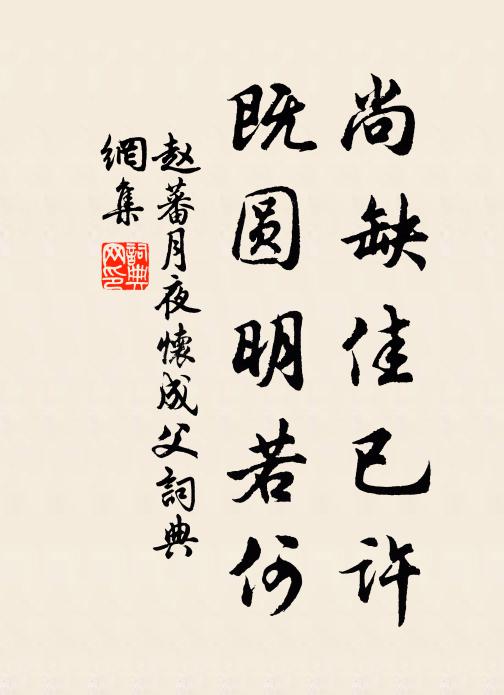 尚缺佳已许
既圆明若何
赵蕃月夜懷成父詞典
網集
詞典
网印